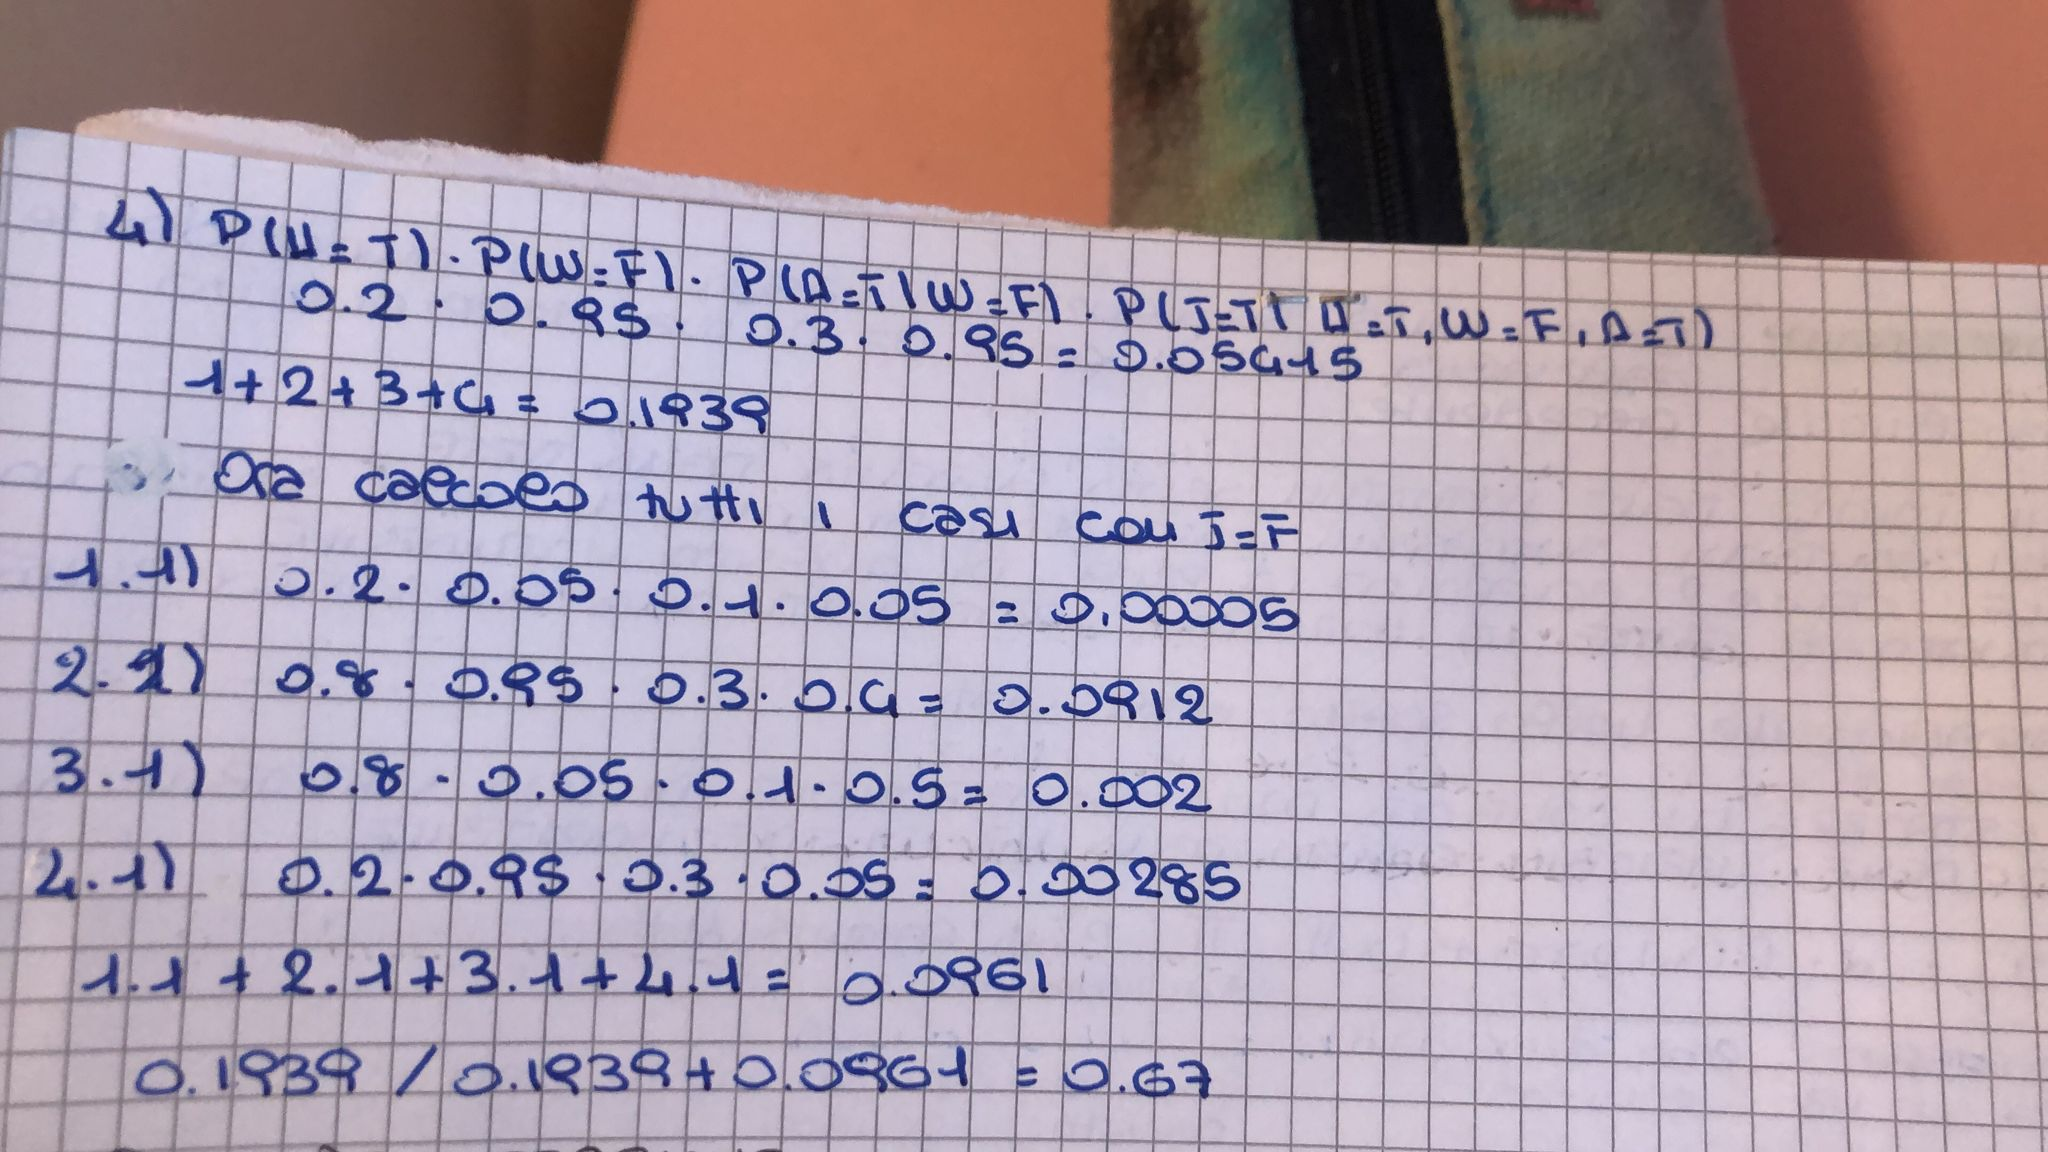 4) P(H=T). P(W=F). P(A=T|W=F). P(J=T| H=T, W=F, A=T)
0.2 . 0.95 . 0.3 . 0.95 = 0.05415
1+2+3+4= 0.1939
Ora calcolo tutti i casi con J=F
1.1) 0.2 . 0.05 . 0.1 . 0.05 = 0.00005
2.1) 0.8 . 0.95 . 0.3 . 0.4 = 0.0912
3.1) 0.8 . 0.05 . 0.1 . 0.5 = 0.002
4.1) 0.2 . 0.95 . 0.3 . 0.05 = 0.00285
1.1 + 2.1 + 3.1 + 4.1 = 0.0961
0.1939 / 0.1939 + 0.0961 = 0.67